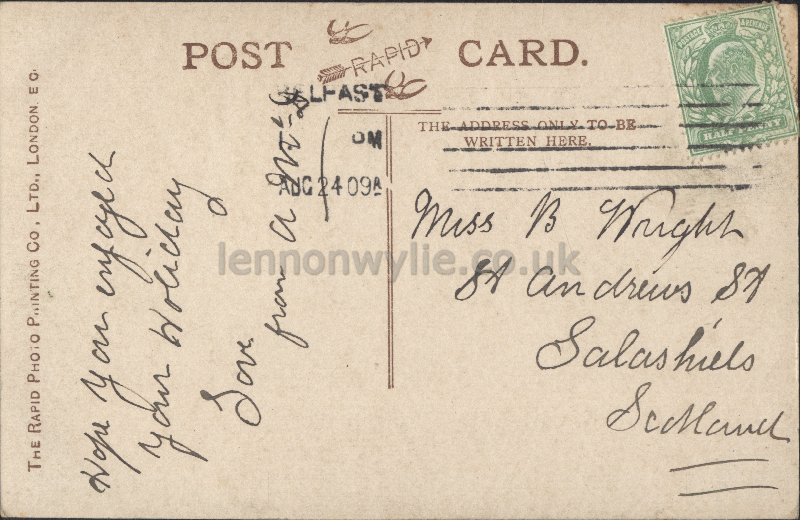 POST CARD.
RAPID
BELFAST
PM
AUG 24 09
POSTAGE & REVENUE
HALFPENNY
THE ADDRESS ONLY TO BE
WRITTEN HERE.
Miss B Wright
St Andrews St
Galashiels
Scotland
Hope you enjoyed
your Holiday
Love
from A
THE RAPID PHOTO PRINTING CO., LTD., LONDON. E C.
lennonwylie.co.uk